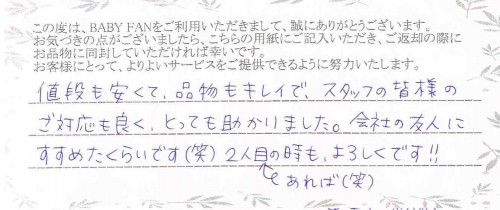 この度は、BABY FANをご利用いただきまして、誠にありがとうございます。
お気づきの点がございましたら、こちらの用紙にご記入いただき、ご返却の際に
お品物に同封していただければ幸いです。
お客様にとって、よりよいサービスをご提供できるように努力いたします。
値段も安くて、品物もキレイで、スタッフの皆様の
ご対応も良く、とっても助かりました。会社の友人に
すすめたくらいです(笑) 2人目の時も、よろしくです!!
あれば(笑)